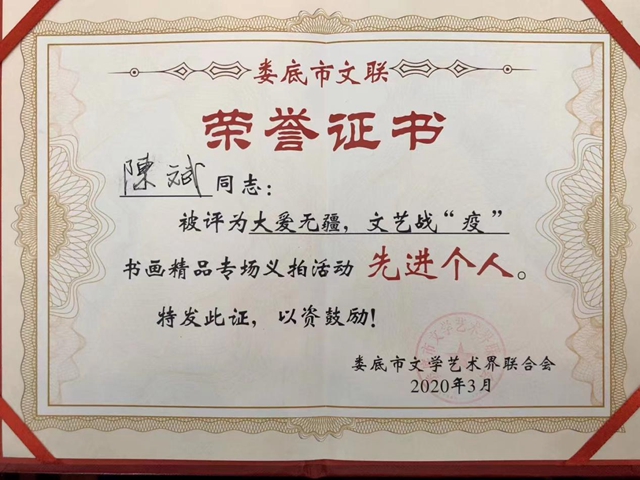 娄底市文联
荣誉证书
陳斌 同志：
被评为大爱无疆，文艺战“疫”
书画精品专场义拍活动 先进个人。
特发此证，以资鼓励！
娄底市文学艺术界联合会
2020年3月